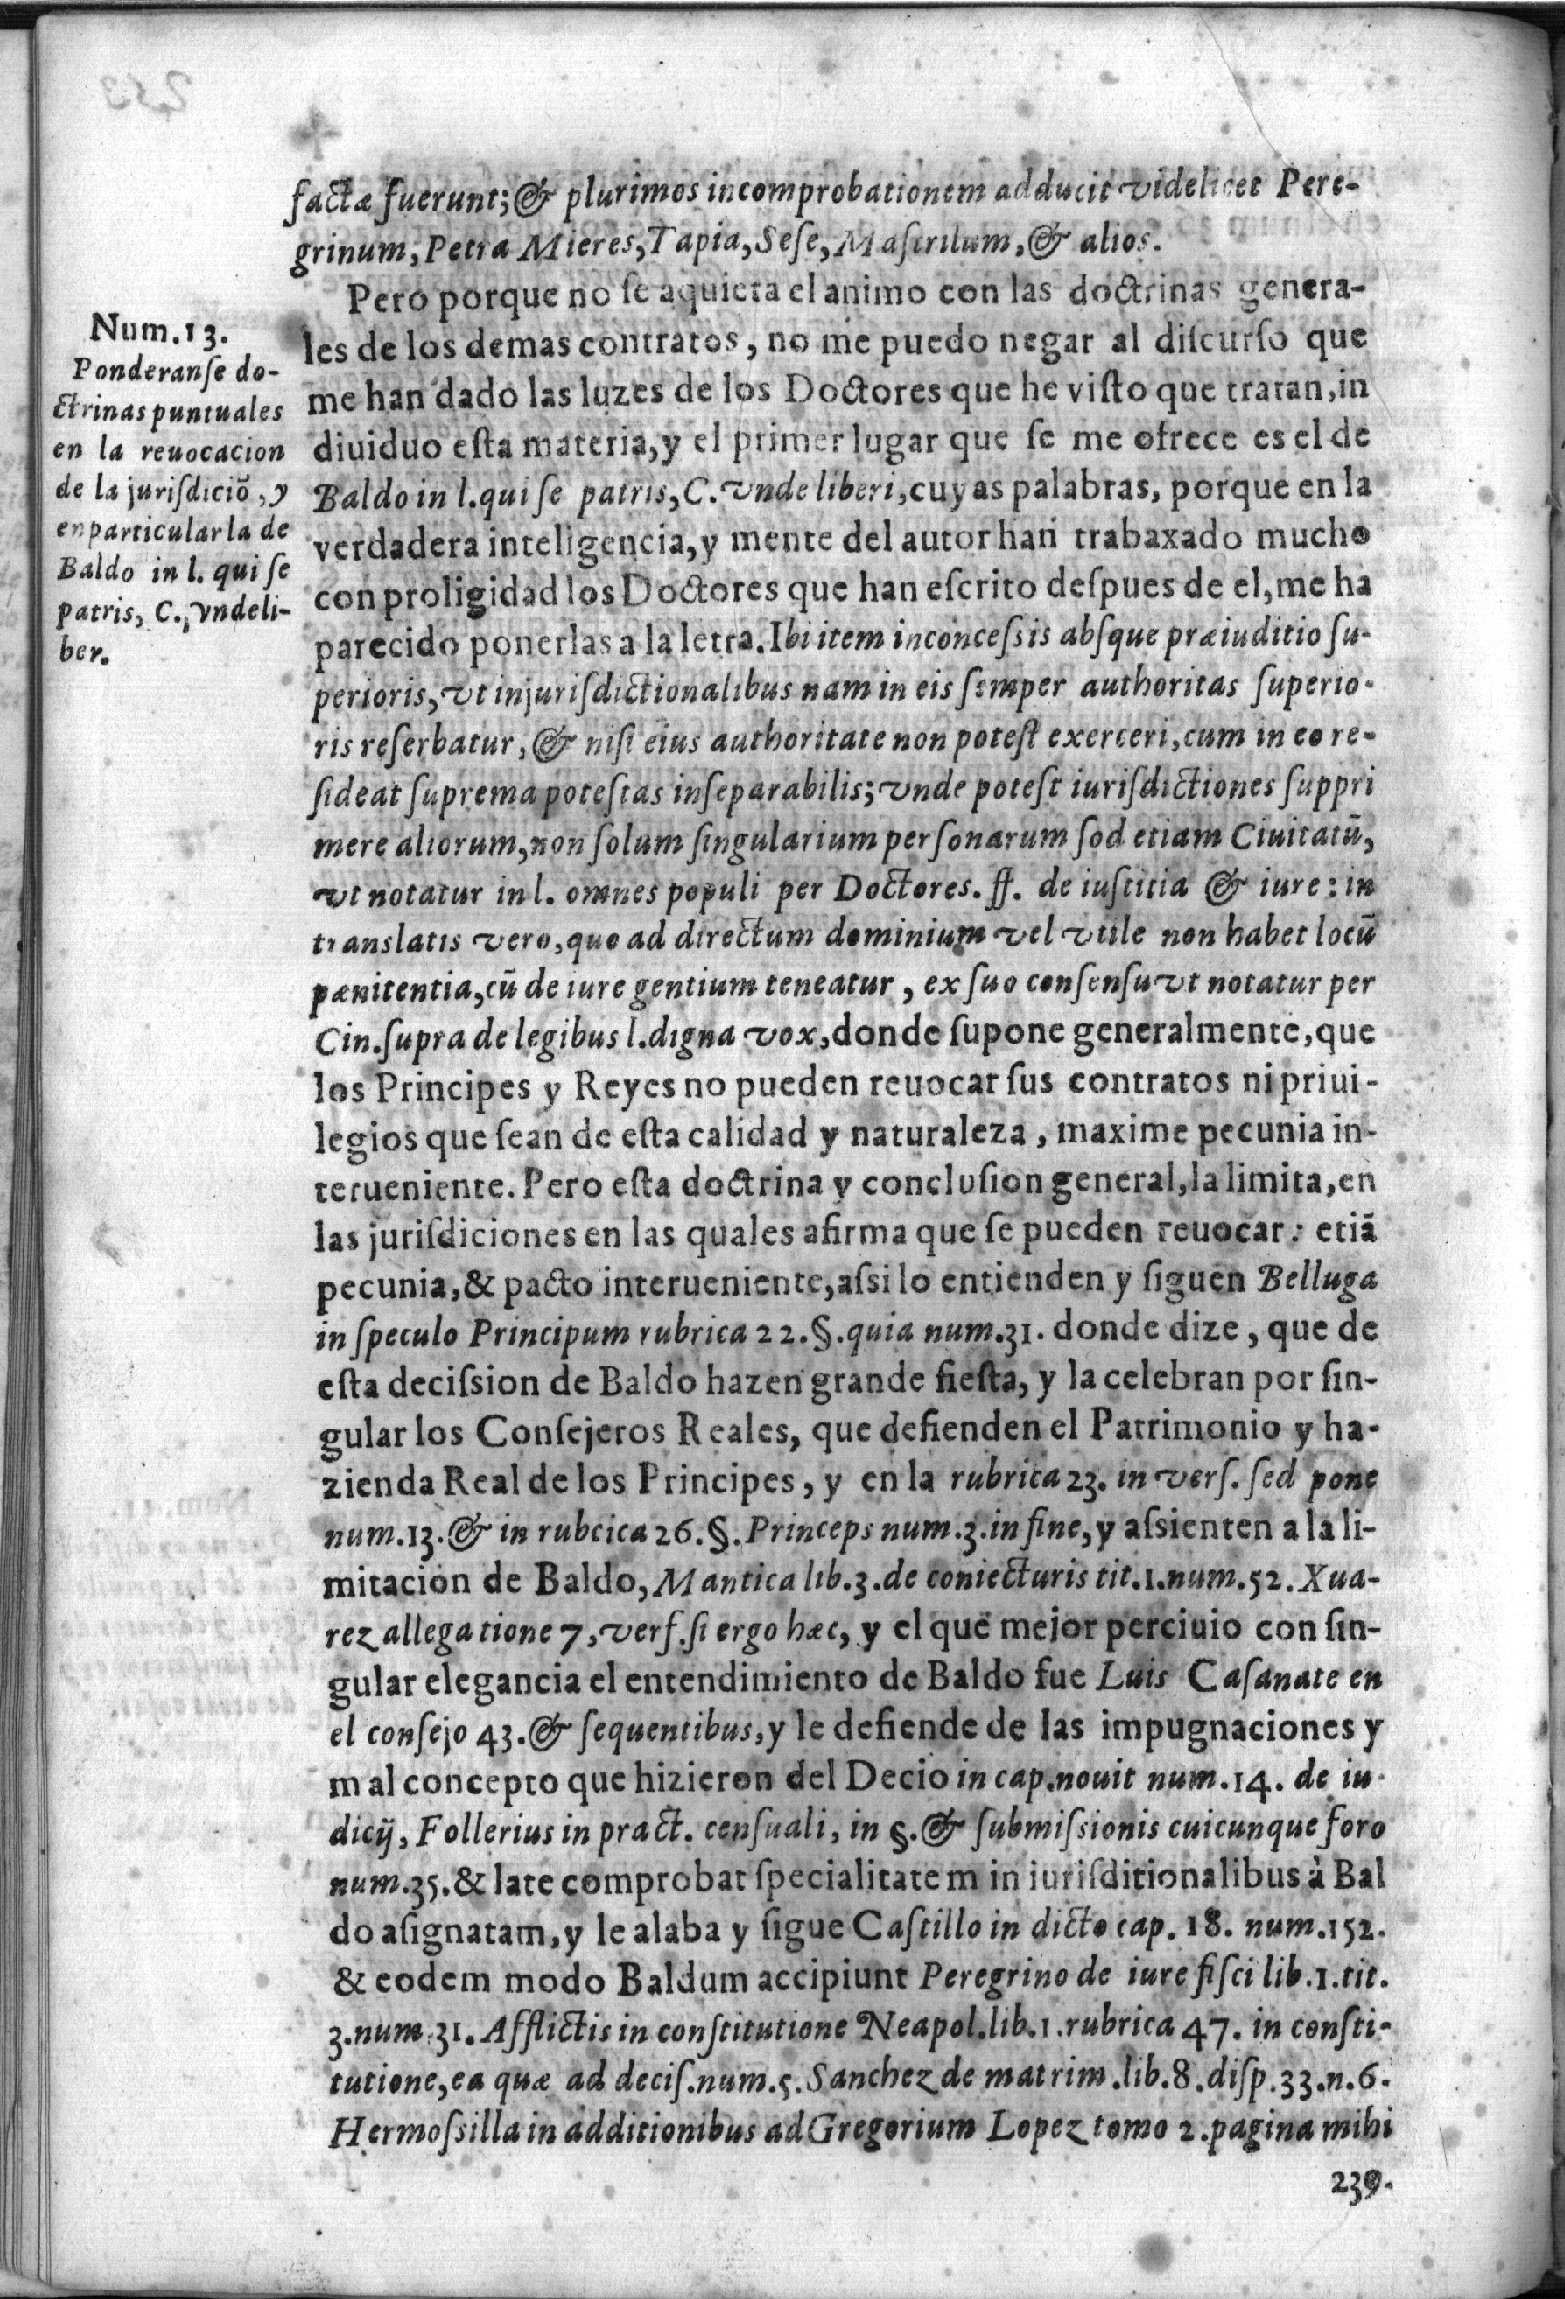 factæ fuerunt; & plurimos in comprobationem adducit videlicet Pere-
grinum, Petra Mieres, Tapia, Sese, Mastrilum, & alios.
Pero porque no ſe aquieta el animo con las doctrinas genera-
les de los demas contratos, no me puedo negar al diſcurſo que
me han dado las luzes de los Doctores que he viſto que tratan, in
diuiduo eſta materia, y el primer lugar que ſe me ofrece es el de
Baldo in l. qui ſe patris, C. vnde liberi, cuyas palabras, porque en la
verdadera inteligencia, y mente del autor han trabaxado mucho
con proligidad los Doctores que han eſcrito deſpues de el, me ha
parecido ponerlas a la letra. Ibi item in conceſsis abſque præiuditio ſu-
perioris, vt in juriſdictionalibus nam in eis ſemper authoritas ſuperio-
ris reſerbatur, & niſi eius authoritate non poteſt exerceri, cum in eo re-
ſideat ſuprema poteſtas inſeparabilis; vnde poteſt iuriſdictiones ſuppri
mere aliorum, non ſolum ſingularium perſonarum ſod etiam Ciuitatũ,
vt notatur in l. omnes populi per Doctores. ff. de iuſtitia & iure: in
translatis vero, quo ad directum dominium vel vtile non habet locũ
pænitentia, cũ de iure gentium teneatur, ex ſuo conſenſu vt notatur per
Cin. ſupra de legibus l. digna vox, donde ſupone generalmente, que
los Principes y Reyes no pueden reuocar ſus contratos ni priui-
legios que ſean de eſta calidad y naturaleza, maxime pecunia in-
terueniente. Pero eſta doctrina y concluſion general, la limita, en
las juriſdiciones en las quales afirma que ſe pueden reuocar: etiã
pecunia, & pacto interueniente, aſsi lo entienden y ſiguen Belluga
in ſpeculo Principum rubrica 22. §. quia num. 31. donde dize, que de
eſta deciſsion de Baldo hazen grande fieſta, y la celebran por ſin-
gular los Conſejeros Reales, que defienden el Patrimonio y ha-
zienda Real de los Principes, y en la rubrica 23. in verſ. ſed pone
num. 13. & in rubcica 26. §. Princeps num. 3. in fine, y aſsienten a la li-
mitacion de Baldo, Mantica lib. 3. de coniecturis tit. 1. num. 52. Xua-
rez allegatione 7, verſ. ſi ergo hæc, y el que mejor perciuio con ſin-
gular elegancia el entendimiento de Baldo fue Luis Caſanate en
el conſejo 43. & ſequentibus, y le defiende de las impugnaciones y
mal concepto que hizieron del Decio in cap. nouit num. 14. de iu-
dicij, Follerius in pract. cenſuali, in §. & ſubmiſsionis cuicunque foro
num. 35. & late comprobat ſpecialitatem in iuriſditionalibus à Bal
do aſignatam, y le alaba y ſigue Caſtillo in dicto cap. 18. num. 152.
& eodem modo Baldum accipiunt Peregrino de iure fiſci lib. 1. tit.
3. num. 31. Afflictis in conſtitutione Neapol. lib. 1. rubrica 47. in conſti-
tutione, ea quæ ad deciſ. num. 5. Sanchez de matrim. lib. 8. diſp. 33. n. 6.
Hermoſsilla in additionibus ad Gregorium Lopez tomo 2. pagina mihi
239.
Num. 13.
Ponderanſe do-
ctrinas puntuales
en la reuocacion
de la juriſdiciõ, y
en particular la de
Baldo in l. qui ſe
patris, C., vnde li-
ber.